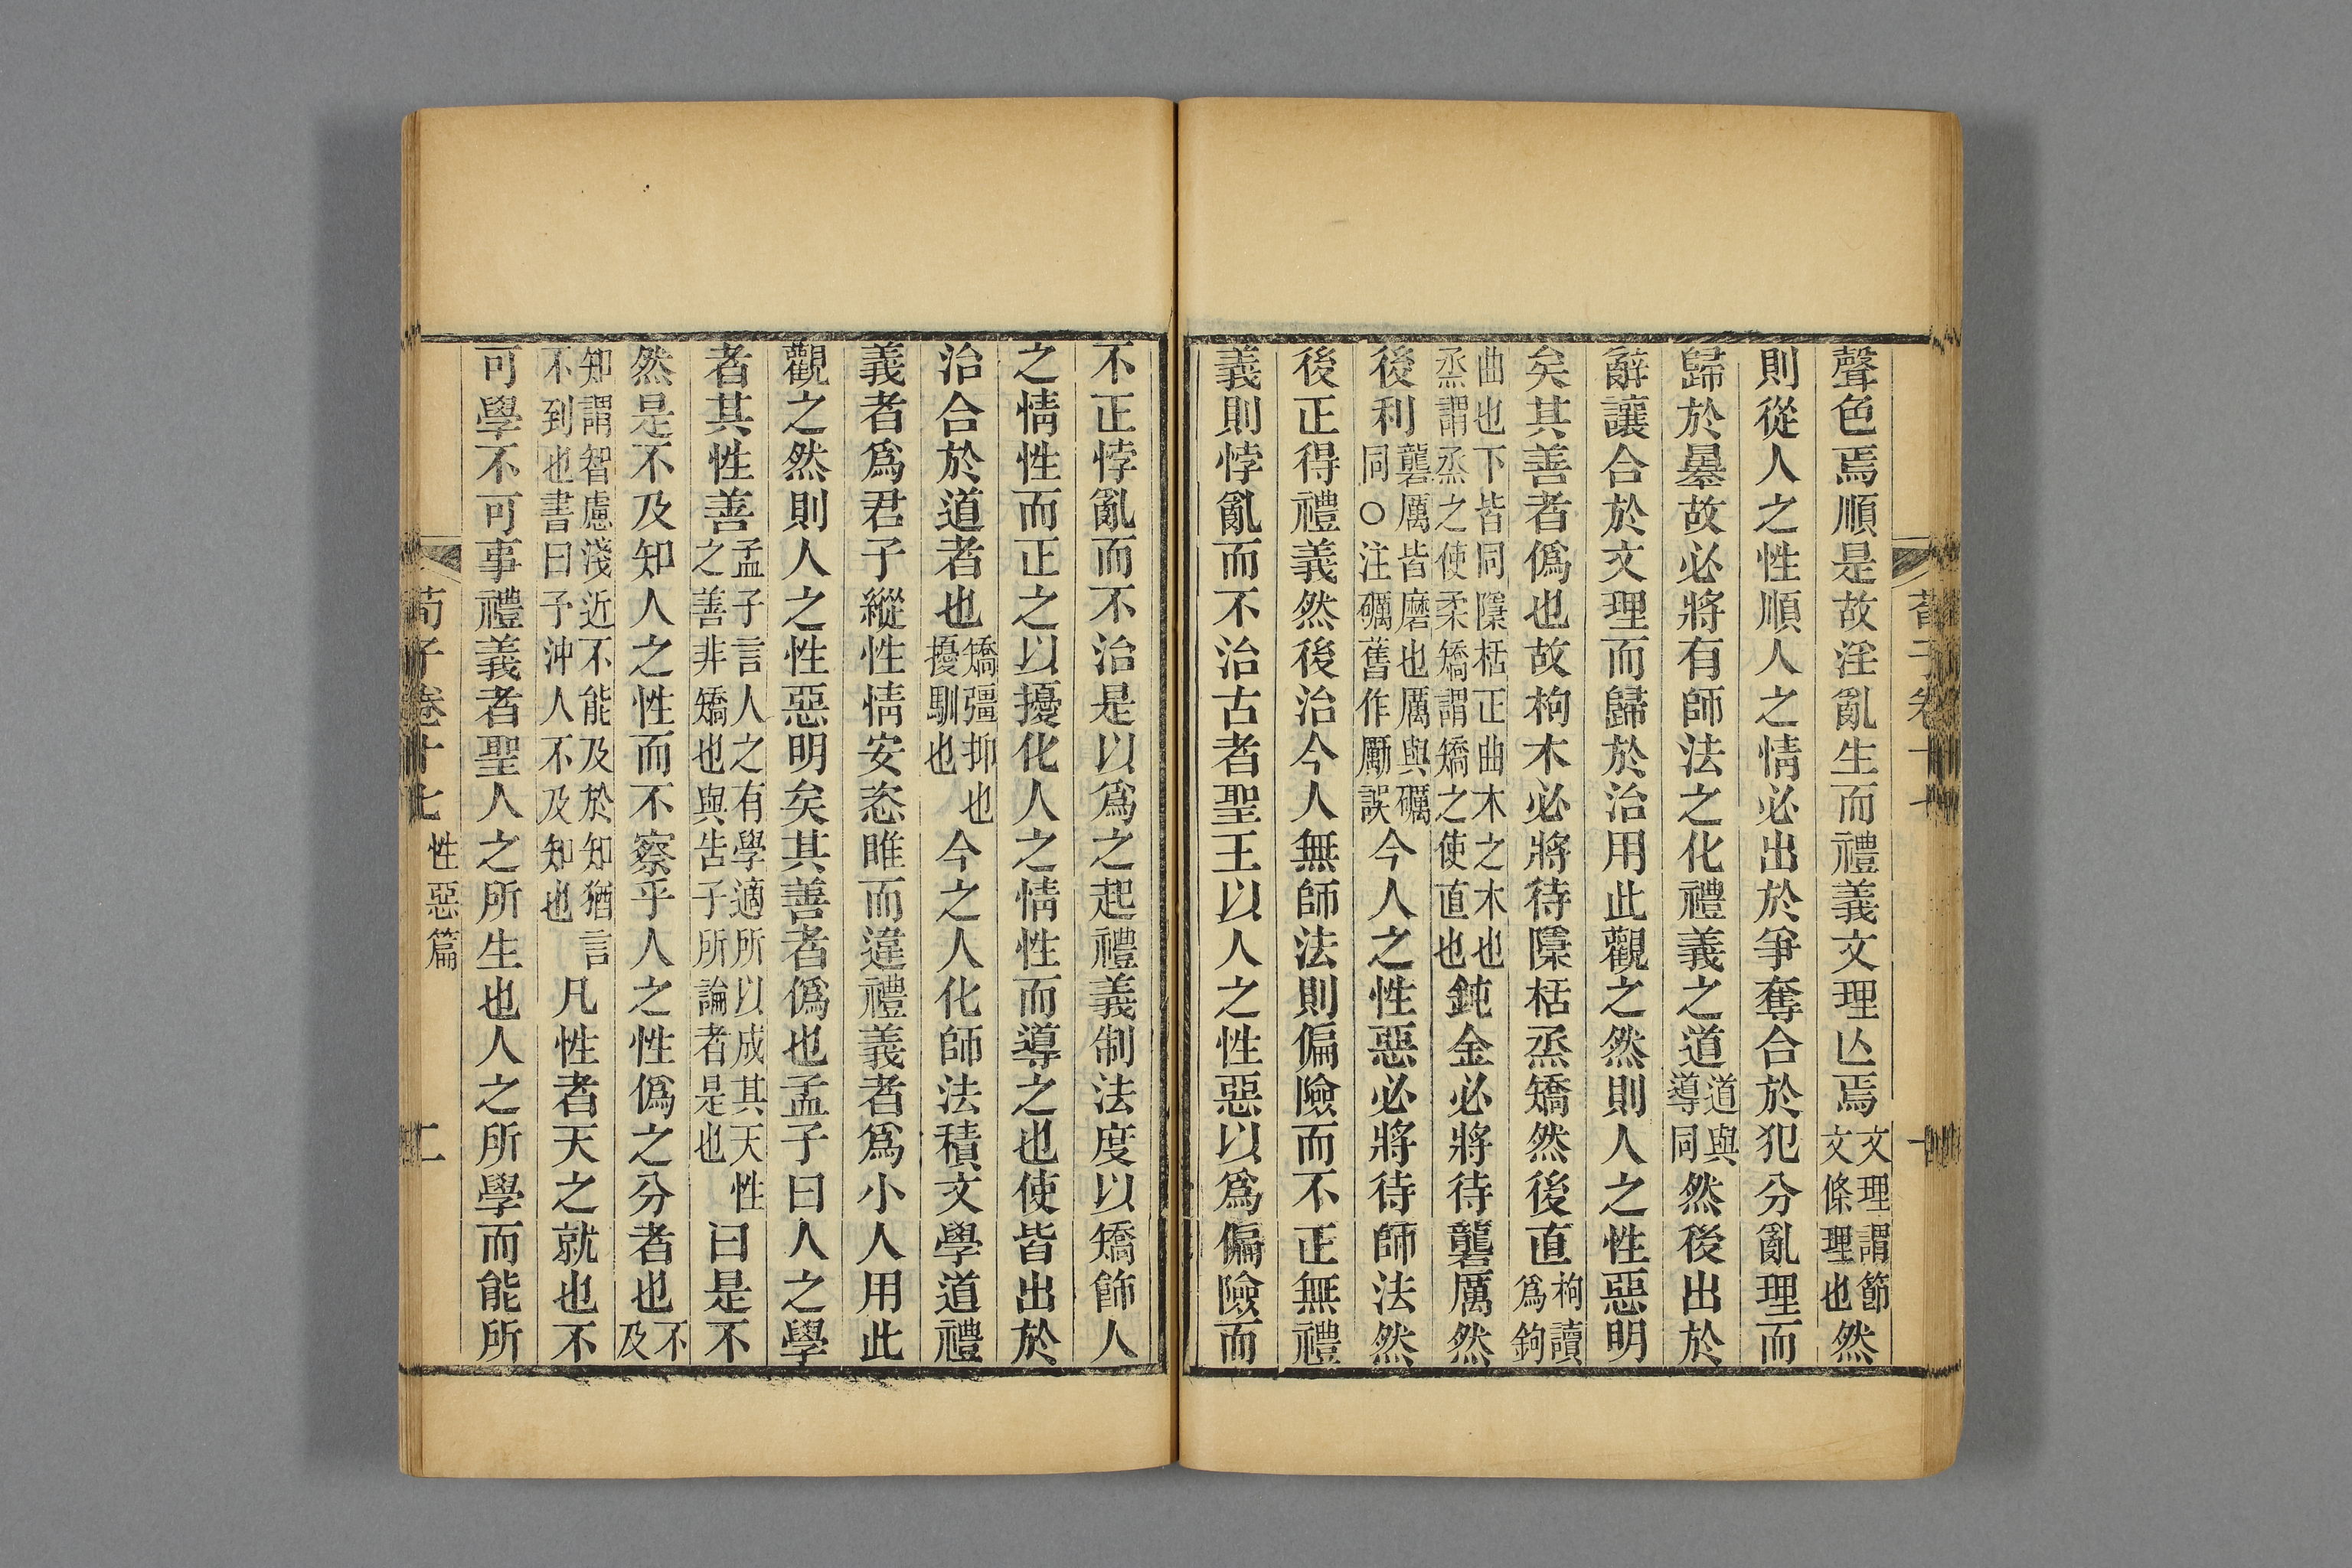 聲色焉順是故淫亂生而禮義文理亾焉文理謂節文條理也然
則從人之性順人之情必出於爭奪合於犯分亂理而
歸於㬥故必將有師法之化禮義之道道與導同然後出於
辭讓合於文理而歸於治用此觀之然則人之性惡明
矣其善者僞也故枸木必將待檃栝烝矯然後直枸讀爲鉤
曲也下皆同檃栝正曲木之木也烝謂烝之使柔矯謂矯之使直也鈍金必將待礱厲然
後利礱厲皆磨也厲與礪同○注礪舊作勵誤今人之性惡必將待師法然
後正得禮義然後治今人無師法則偏險而不正無禮
義則悖亂而不治古者聖王以人之性惡以爲偏險而
不正悖亂而不治是以爲之起禮義制法度以矯飾人
之情性而正之以擾化人之情性而導之也使皆出於
治合於道者也矯彊抑也擾馴也今之人化師法積文學道禮
義者爲君子縱性情安恣睢而違禮義者爲小人用此
觀之然則人之性惡明矣其善者僞也孟子曰人之學
者其性善孟子言人之有學適所以成其天性之善非矯也與告子所論者是也曰是不
然是不及知人之性而不察乎人之性僞之分者也不及
知謂智慮淺近不能及於知猶言不到也書曰予沖人不及知也凡性者天之就也不
可學不可事禮義者聖人之所生也人之所學而能所
荀子卷十七 性惡篇 二